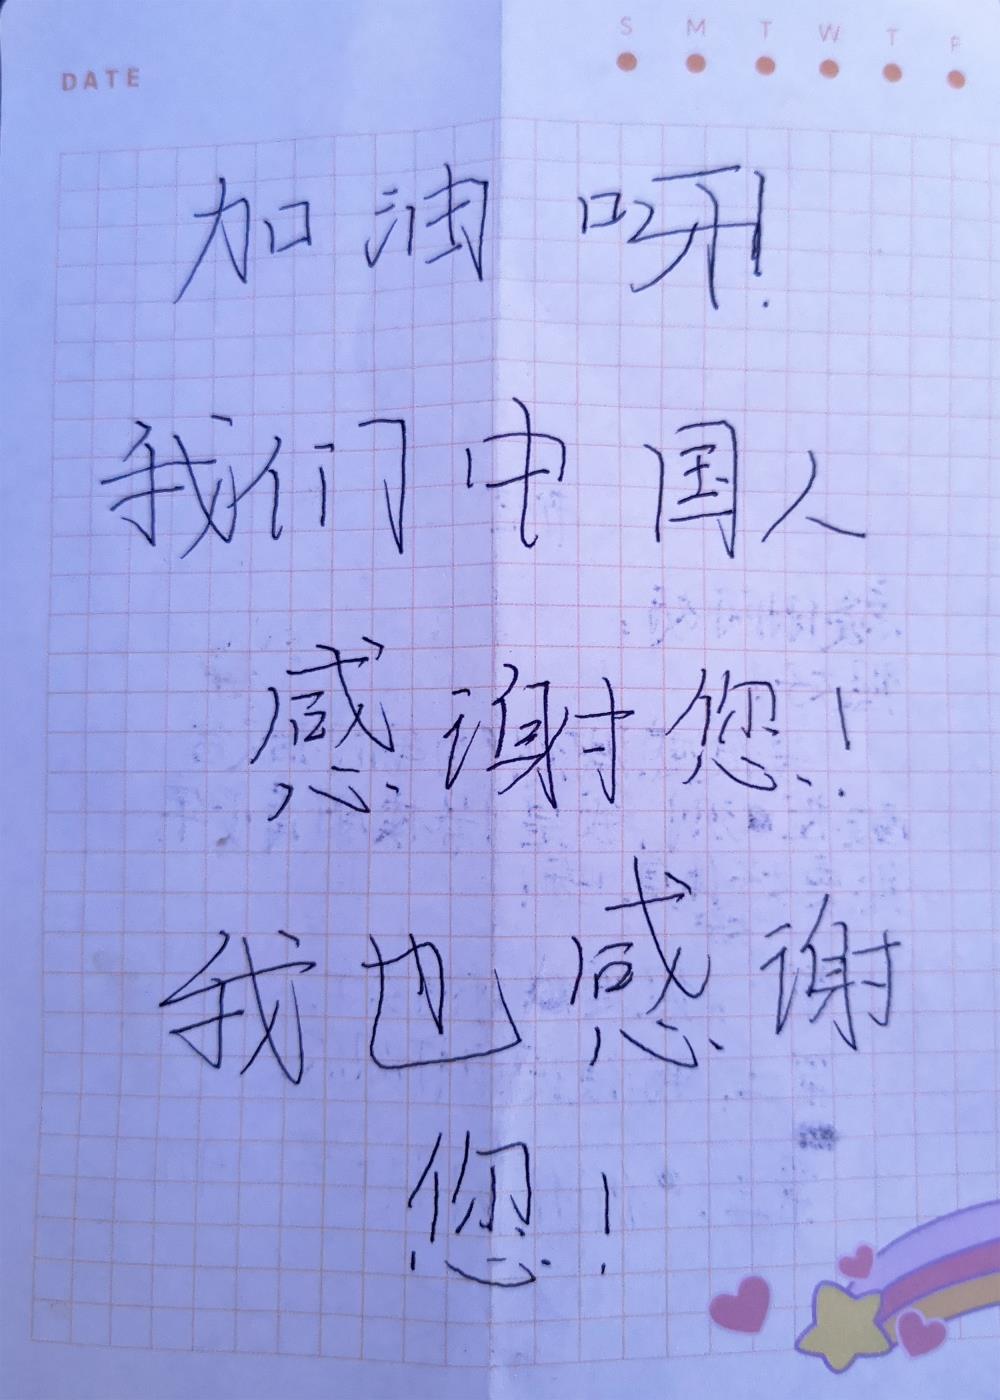 DATE
S M T W T F
加油呀!
我们中国人
感谢您!
我也感谢
您!